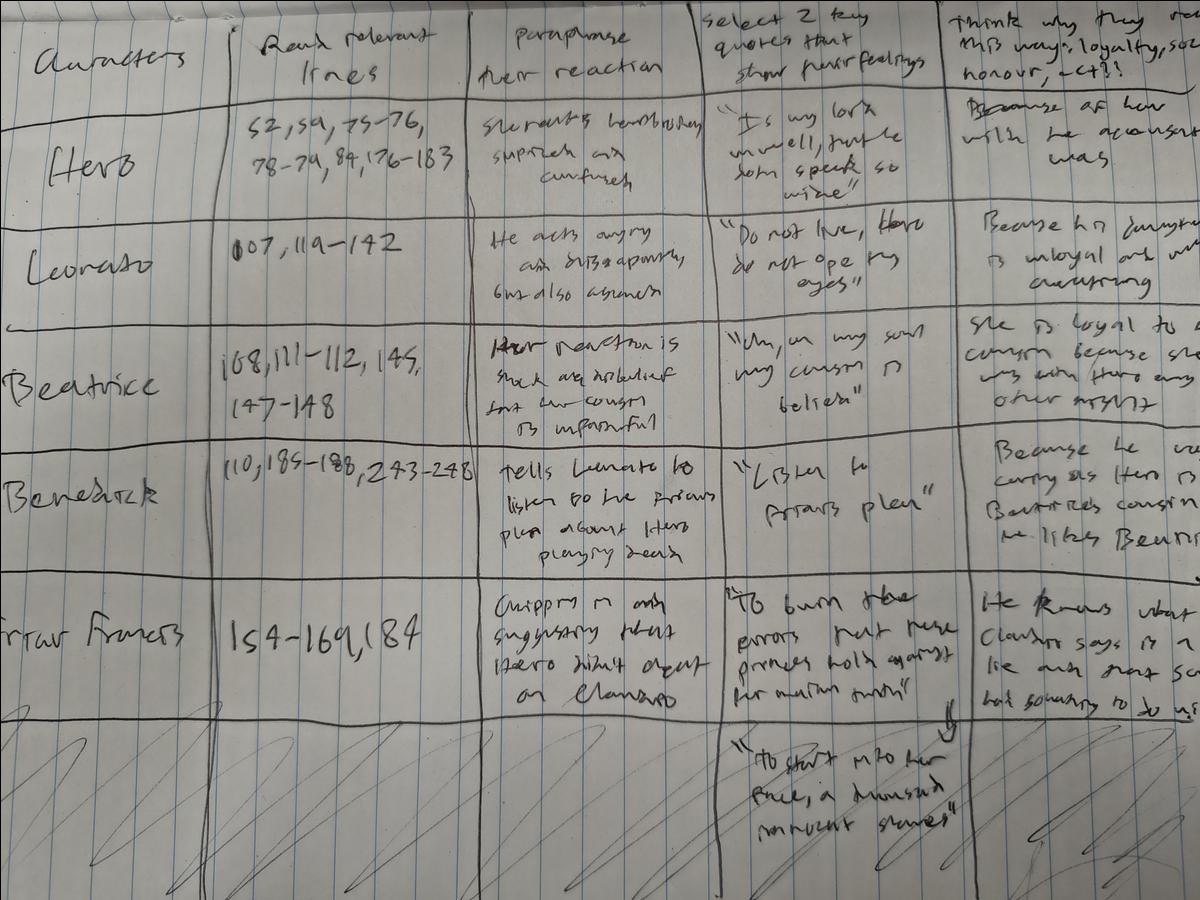 Characters
Read relevant
lines
paraphrase
their reaction
select 2 key
quotes that
show their feelings
Think why they
this way: loyalty,
honour,
Hero
52, 59, 75-76,
78-79, 84, 176-183
heartbroken,
suprised and
confused
"Is my lord
unwell, that he
doth speak so
wide"
Because of how
was
Leonato
107, 119-142
He acts angry
and
but also ashamed
"Do not live, Hero
do not ope thy
eyes"
Because his
is unloyal and
Beatrice
108, 111-112, 145,
147-148
Her reaction is
shock and disbelief
that her cousin
is unfaithful
on my soul
my cousin is
belied"
she is loyal to
cousin because she
was with Hero
other night
Benedick
110, 185-188, 243-248
Tells Leonato to
listen to the Friars
plan about Hero
playing dead
"Listen to
Friars plan"
Because he
as Hero is
Beatrices cousin
he likes
Friar Francis
154-169, 184
and
suggesting that
Hero didnt cheat
on Claudio
"To burn the
errors that these
princes hold against
her maiden truth"
"To start into her
face, a thousand
innocent shames"
He knows what
Claudio says is a
lie and that
had something to do